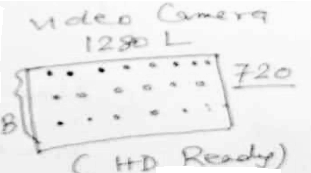 video Camera
1280 L
720
B
( HD Ready)